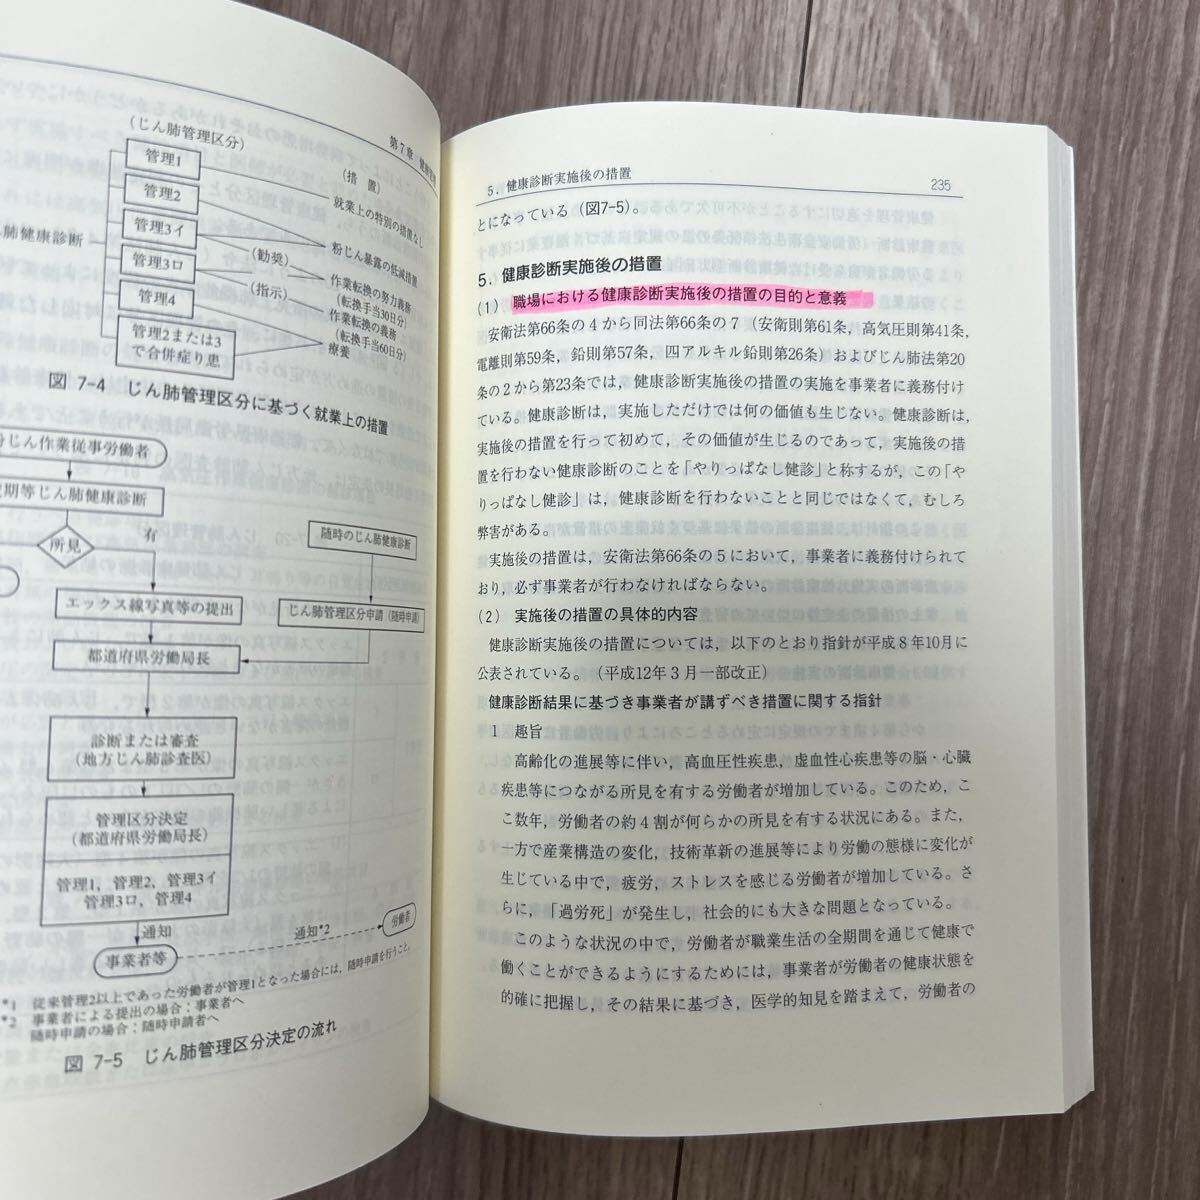 第7章 健康管理
(じん肺管理区分)
(措置)
管理1
管理2
管理3イ
管理3ロ
管理4
管理2または3
で合併症り患
肺健康診断
(勧奨)
(指示)
就業上の特別の措置なし
粉じん暴露の低減措置
作業転換の努力義務
(転換手当30日分)
作業転換の義務
(転換手当60日分)
療養
図 7-4 じん肺管理区分に基づく就業上の措置
じん作業従事労働者
期等じん肺健康診断
所見
有
随時のじん肺健康診断
エックス線写真等の提出
じん肺管理区分申請(随時申請)
都道府県労働局長
診断または審査
(地方じん肺診査医)
管理区分決定
(都道府県労働局長)
管理1, 管理2, 管理3イ
管理3ロ, 管理4
通知
通知*2
労働者
事業者等
*1 従来管理2以上であった労働者が管理1となった場合には, 随時申請を行うこと。
*2 事業者による提出の場合:事業者へ
随時申請の場合:随時申請者へ
図 7-5 じん肺管理区分決定の流れ
5. 健康診断実施後の措置 235
とになっている(図7-5)。
5. 健康診断実施後の措置
(1) 職場における健康診断実施後の措置の目的と意義
安衛法第66条の4から同法第66条の7(安衛則第61条, 高気圧則第41条,
電離則第59条, 鉛則第57条, 四アルキル鉛則第26条)およびじん肺法第20
条の2から第23条では, 健康診断実施後の措置の実施を事業者に義務付け
ている。健康診断は, 実施しただけでは何の価値も生じない。健康診断は,
実施後の措置を行って初めて, その価値が生じるのであって, 実施後の措
置を行わない健康診断のことを「やりっぱなし健診」と称するが, この「や
りっぱなし健診」は, 健康診断を行わないことと同じではなくて, むしろ
弊害がある。
実施後の措置は, 安衛法第66条の5において, 事業者に義務付けられて
おり, 必ず事業者が行わなければならない。
(2) 実施後の措置の具体的内容
健康診断実施後の措置については, 以下のとおり指針が平成8年10月に
公表されている。(平成12年3月一部改正)
健康診断結果に基づき事業者が講ずべき措置に関する指針
1 趣旨
高齢化の進展等に伴い, 高血圧性疾患, 虚血性心疾患等の脳・心臓
疾患等につながる所見を有する労働者が増加している。このため, こ
こ数年, 労働者の約4割が何らかの所見を有する状況にある。また,
一方で産業構造の変化, 技術革新の進展等により労働の態様に変化が
生じている中で, 疲労, ストレスを感じる労働者が増加している。さ
らに, 「過労死」が発生し, 社会的にも大きな問題となっている。
このような状況の中で, 労働者が職業生活の全期間を通じて健康で
働くことができるようにするためには, 事業者が労働者の健康状態を
的確に把握し, その結果に基づき, 医学的知見を踏まえて, 労働者の